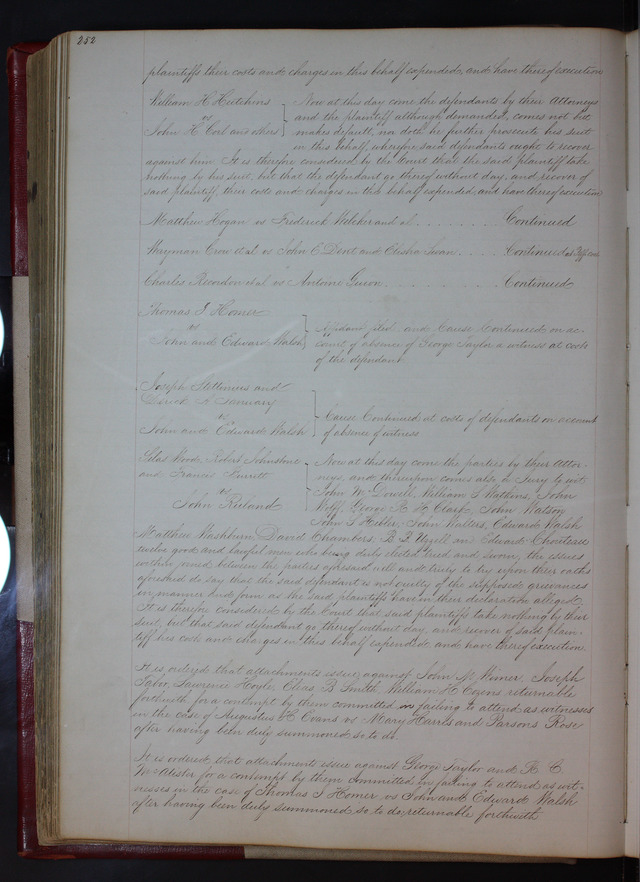 252
plaintiffs their costs and charges in this behalf expended, and have thereof execution
William H Hutchins
vs
John H. Corl and others
Now at this day come the defendants by their Attorneys
and the plaintiff although demanded, comes not but
makes default, nor doth he further prosecute his suit
in this behalf, wherefore said defendants ought to recover
against him. It is therefore considered by the Court that the said plaintiff take
nothing by his suit, but that the defendant go thereof without day, and recover of
said plaintiff, their costs and charges in this behalf expended, and have thereof execution
Matthew Hogan vs Frederick and al. . . . . . . . . Continued
Wayman Crow et al vs John C. Dent and Elisha Swan . . . . . Continued at Plffs costs
Charles et al vs Antoine . . . . . . . . . . Continued
Thomas J Homer
vs
John and Edward Walsh
Affidavit filed and Cause Continued on ac-
count of absence of George Taylor a witness at costs
of the defendant
Joseph Stettinius and
Derick A January
vs
John and Edward Walsh
Cause Continued at costs of defendants on account
of absence of witness
Silas Wood, Robert Johnstone
and Francis
vs
John Ruland
Now at this day come the parties by their Attor-
neys, and thereupon comes also a Jury to wit,
John W. Dowell, William S Watkins, John
Wolff, George H. H. Clark, John Watson
John S Hesler, John Walters, Edward Walsh
Matthew Washburn, David Chambers, B. L. Uzzell and Edward Chouteau
twelve good and lawful men who being duly elected tried and sworn, the issues
within joined between the parties aforesaid well and truly to try upon their oaths
aforesaid do say that the said defendant is not guilty of the supposed grievances
in manner and form as the said plaintiffs have in their declaration alleged.
It is therefore considered by the Court that said plaintiffs take nothing by their
suit, but that said defendant go thereof without day, and recover of said plain-
tiff his costs and charges in this behalf expended and have thereof execution.
It is ordered that attachments issue against John M Wimer, Joseph
Tabor, Lawrence Hoyle, Elias B Smith, William H Cozens returnable
forthwith for a contempt by them committed in failing to attend as witnesses
in the case of Augustus H. Evans vs Mary Harris and Parsons Rose
after having been duly summoned so to do.
It is ordered that attachments issue against George Taylor and H. C.
McAlister for a contempt by them committed in failing to attend as wit-
nesses in the case of Thomas J Homer vs John and Edward Walsh
after having been duly summoned so to do, returnable forthwith